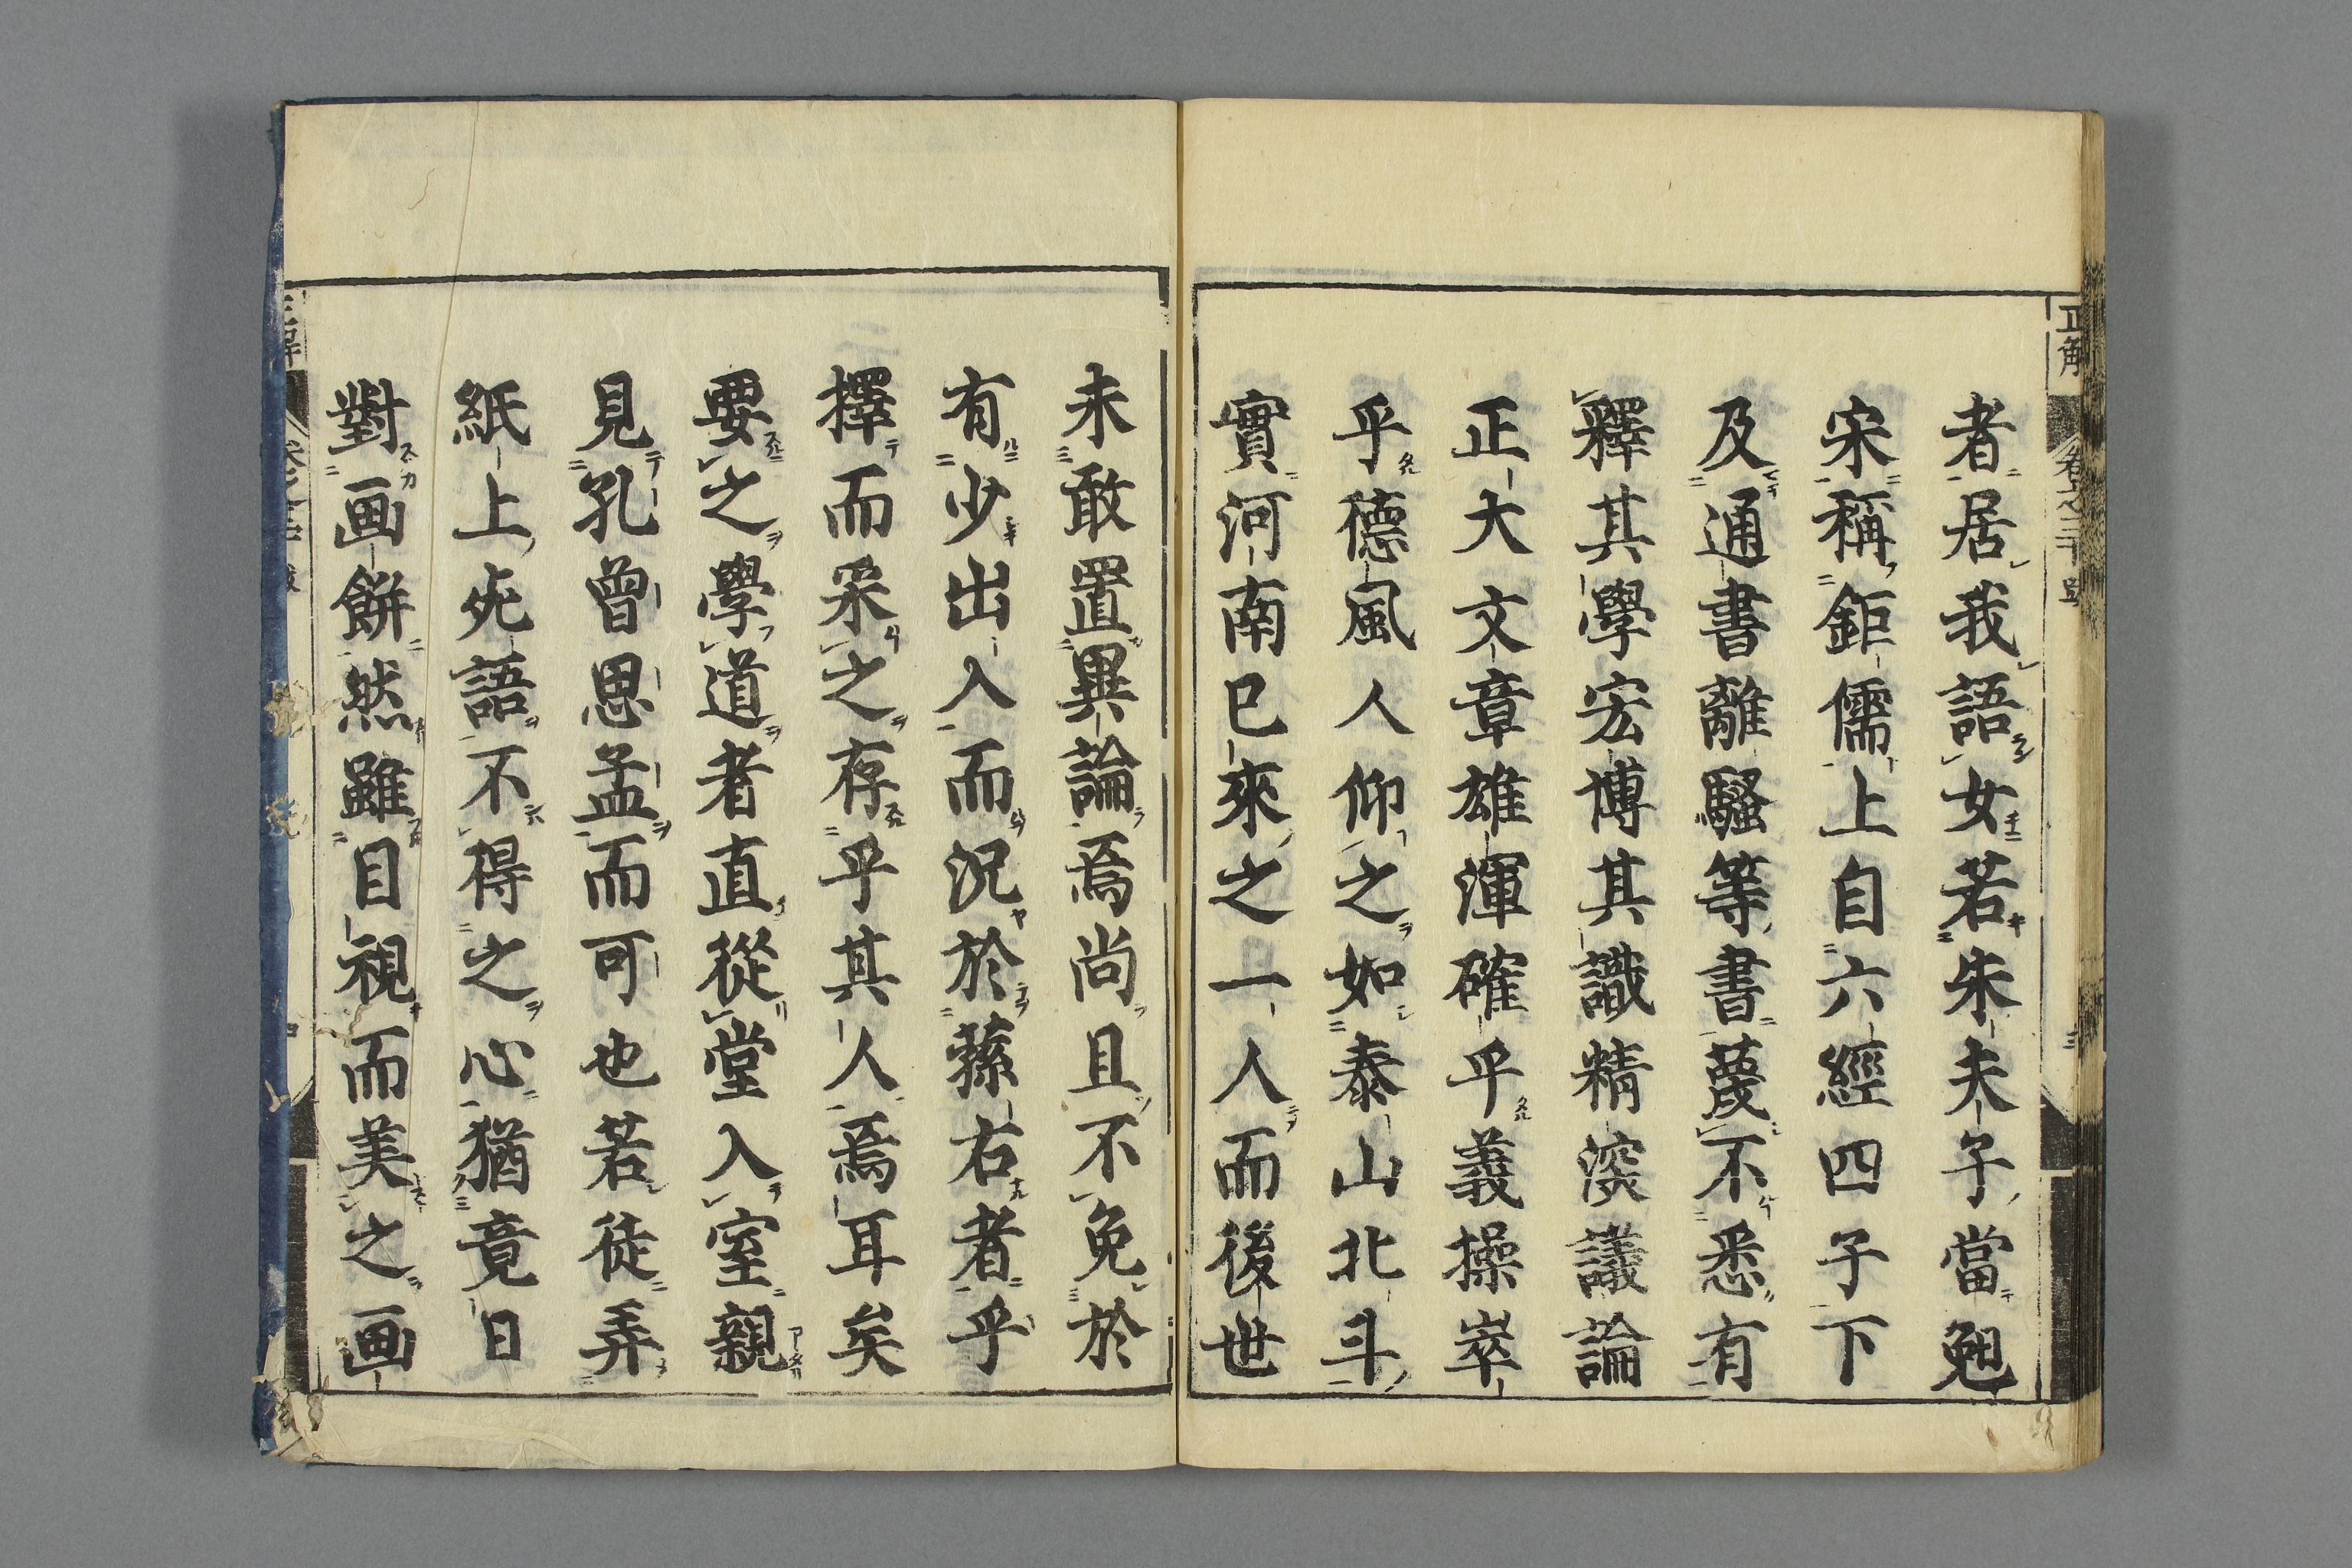 者居我語女若朱夫子當趙
宋稱鉅儒上自六經四子下
及通書離騷等書蔑不悉有
釋其學宏博其識精深議論
正大文章雄渾確乎義操崒
乎德風人仰之如泰山北斗
實河南已來之一人而後世
未敢置異論焉尚且不免於
有少出入而況於蘇右者乎
擇而采之存乎其人焉耳矣
要之學道者直從堂入室親
見孔曾思孟而可也若徒弄
紙上死語不得之心猶竟日
對画餅然雖目視而美之画